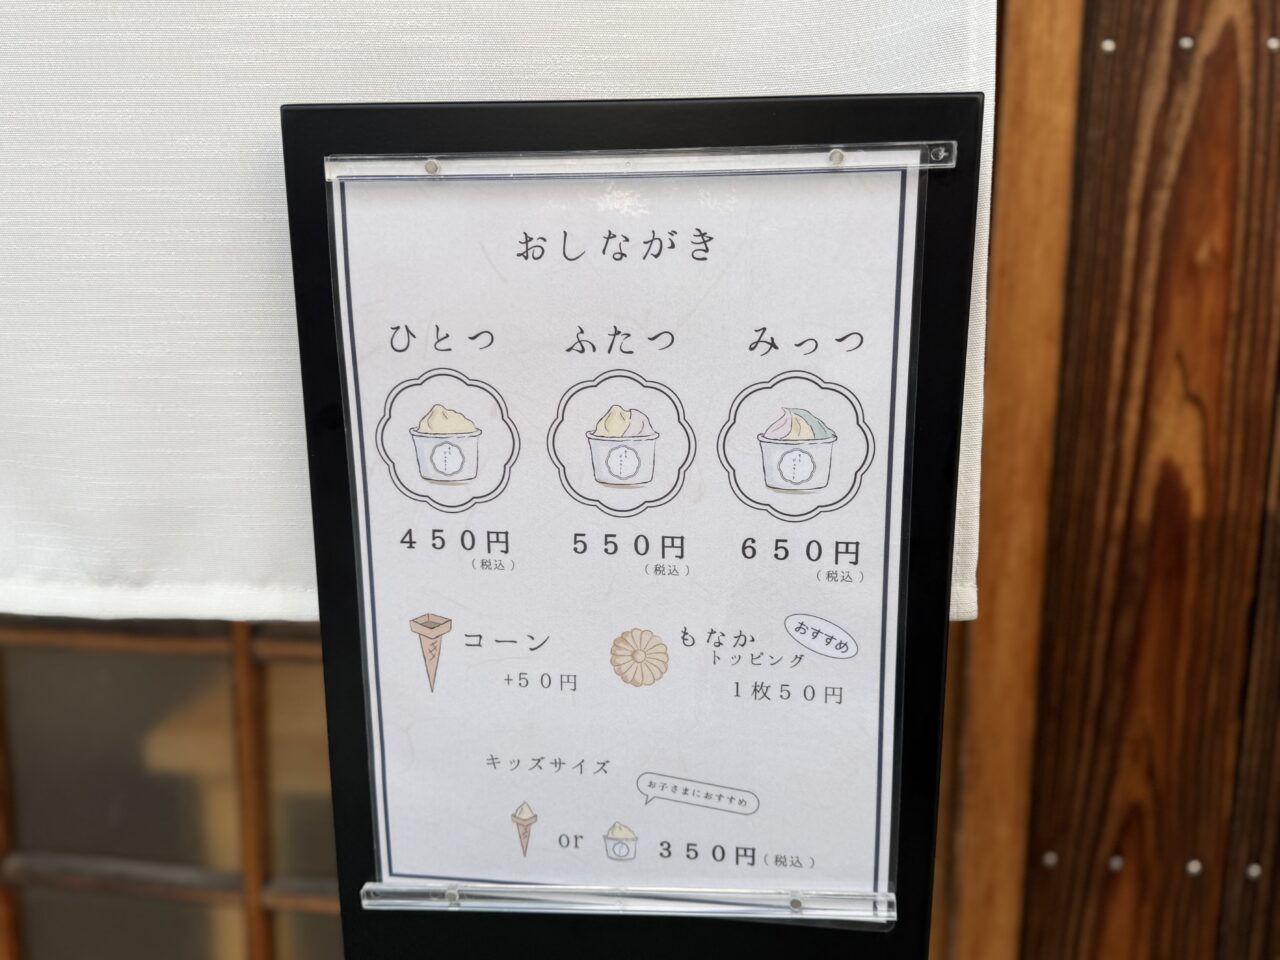 おしながき
ひとつ ふたつ みっつ
450円 550円 650円
(税込) (税込) (税込)
コーン
+50円
もなか
トッピング
おすすめ
1枚50円
キッズサイズ
お子さまにおすすめ
or 350円(税込)